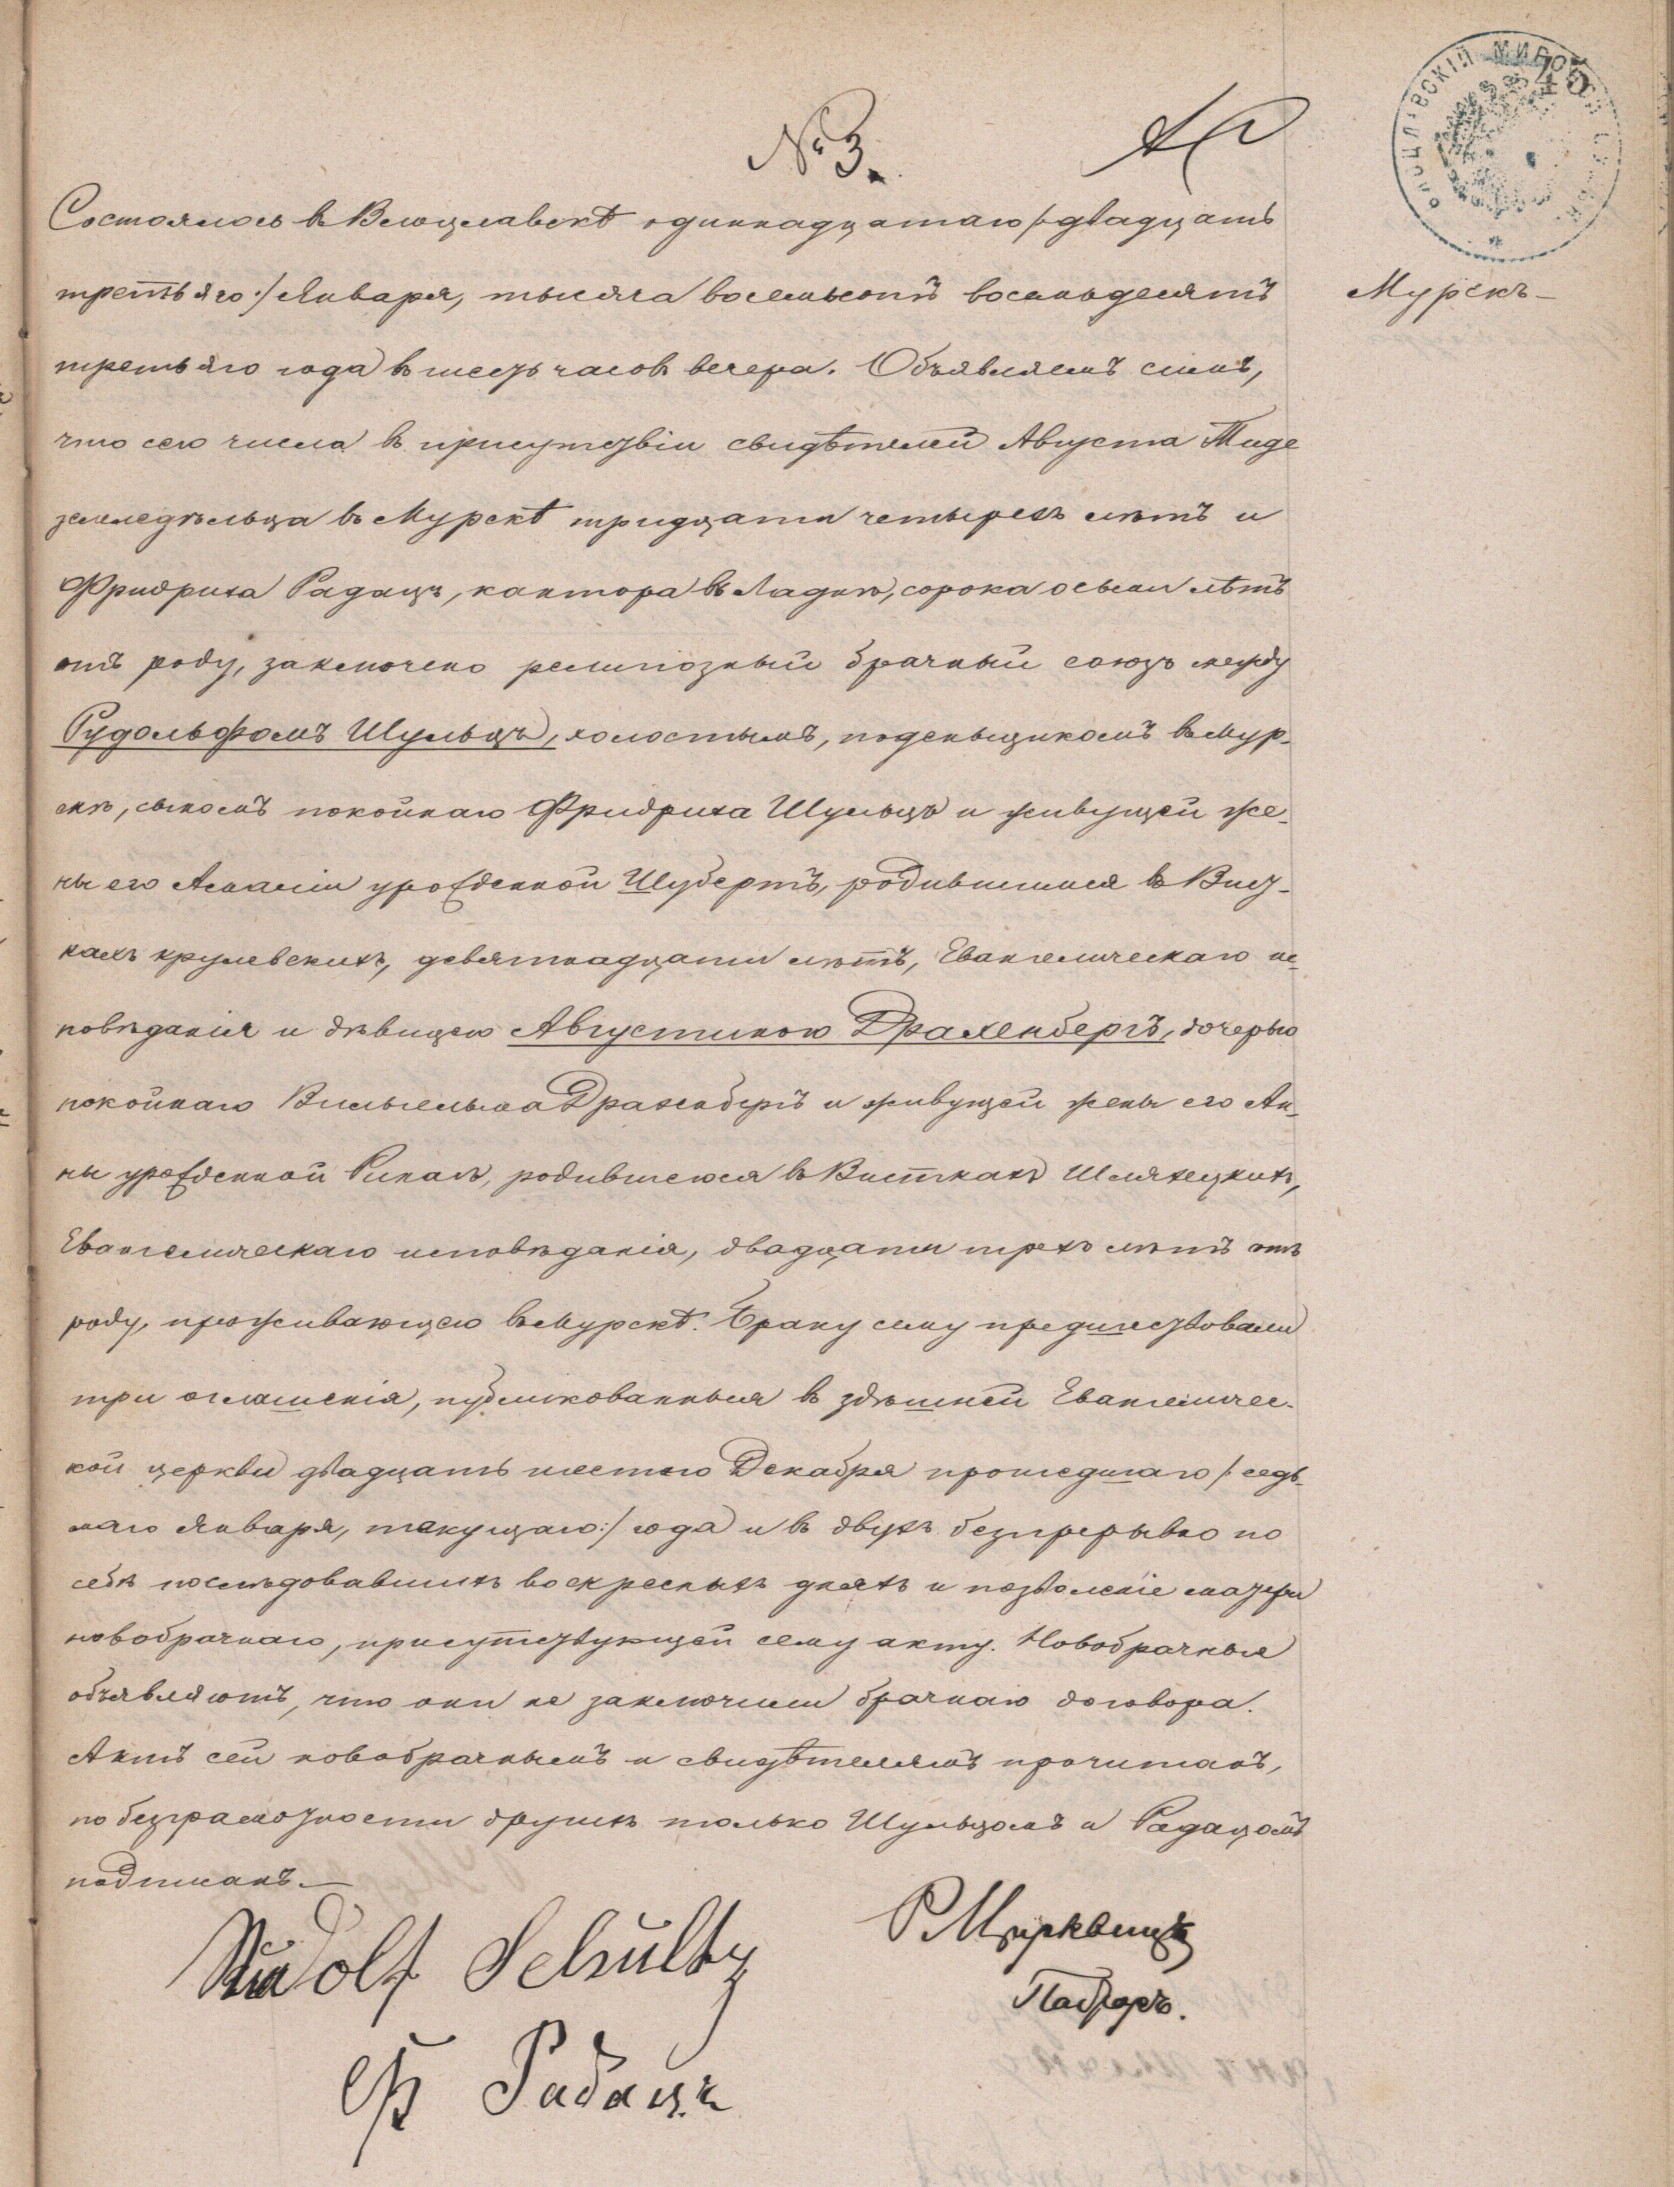 45
№ 3.
Состоялось въ Влоцлавскѣ одиннадцатаго /: двадцать
третьяго :/ Января, тысяча восемьсотъ восемьдесятъ
Мурскъ
третьяго года въ шесть часовъ вечера. Объявляемъ симъ,
что сего числа въ присутствіи свидѣтелей Августа Тиде
земледѣльца въ Мурскѣ тридцати четырехъ лѣтъ и
Фридриха Радацъ, кантора въ Ладнѣ, сорока осьми лѣтъ
отъ роду, заключено религіозный брачный союзъ между
Рудольфомъ Шульцъ, холостымъ, поденьщикомъ въ Мур-
скѣ, сыномъ покойнаго Фридриха Шульцъ и живущей же-
ны его Амаліи урожденной Шубертъ, родившимся въ Вист-
кахъ крулевскихъ, девятнадцати лѣтъ, Евангелическаго ис-
повѣданія и дѣвицею Августиною Драхенбергъ, дочерью
покойнаго Вильгельма Драхенбергъ и живущей жены его Ан-
ны урожденной родившеюся въ Висткахъ Шляхецкихъ,
Евангелическаго исповѣданія, двадцати трехъ лѣтъ отъ
роду, проживающею въ Мурскѣ. Браку сему предшествовали
три оглашенія, публикованныя въ здѣшней Евангеличес-
кой церкви двадцать шестого Декабря прошедшаго /: седь-
маго Января, текущаго :/ года и въ двухъ безпрерывно по
себѣ послѣдовавшихъ воскресныхъ дняхъ и позволеніе матери
новобрачнаго, присутствующей сему акту. Новобрачныя
объявляютъ, что они не заключили брачнаго договора.
Актъ сей новобрачнымъ и свидѣтелямъ прочитанъ,
по безграмотности другихъ только Шульцомъ и Радацомъ
подписанъ.—
Rudolf Schultz
Ф Радацъ
Р Мцурквицъ
Пасторъ.